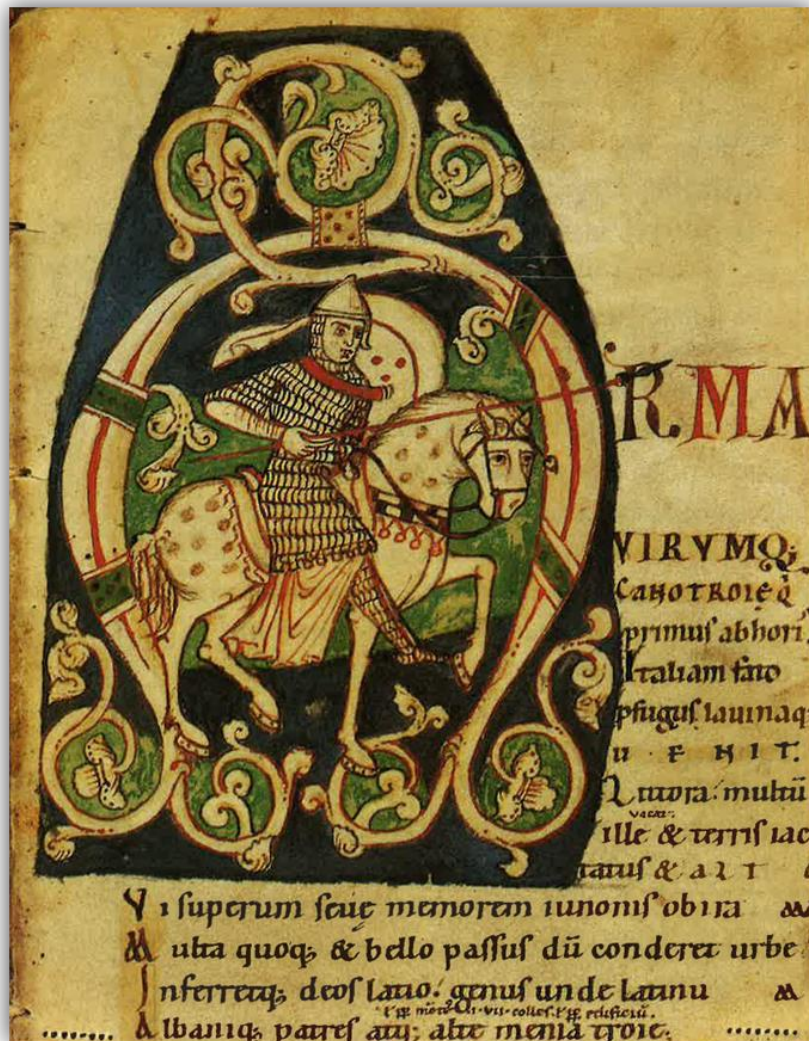 ARMA
VIRVMQ;
CANOTROIEQ
primus abhori
Italiam fato
pfugus lauinaq;
u E N I T.
Littora. multū
uacat.
ille & terris iac
tatus & A L T
V i superum seuę memorem iunonis obira m
M ulta quoq; & bello passus dū conderet urbe
I nferretq; deos latio. genus unde latinu m
A lbaniq; patres atq; alte menia